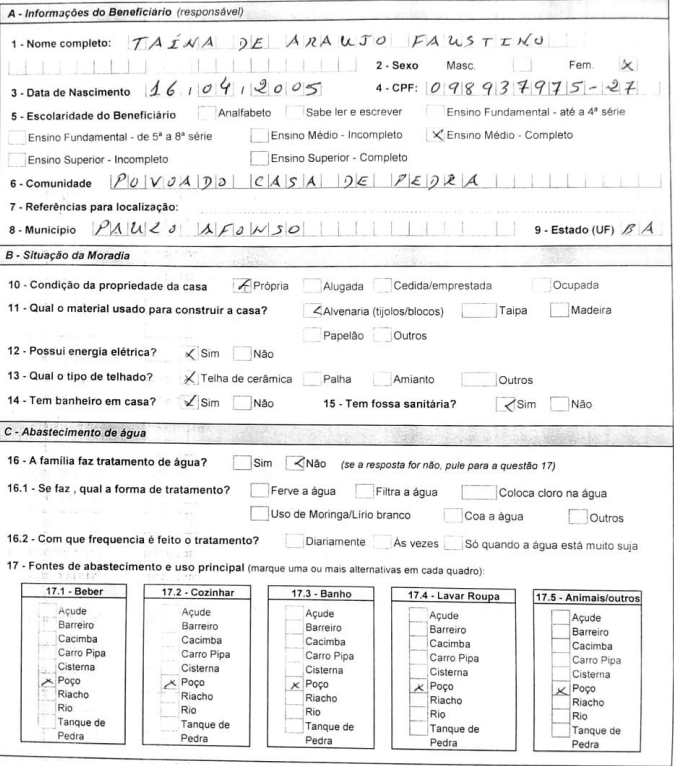 A - Informações do Beneficiário (responsável)
1 - Nome completo: TAÍNA DE ARAUJO FAUSTINO
2 - Sexo Masc. Fem. X
3 - Data de Nascimento 16/04/2005 4 - CPF: 098937975-27
5 - Escolaridade do Beneficiário Analfabeto Sabe ler e escrever Ensino Fundamental - até a 4ª série
Ensino Fundamental - de 5ª a 8ª série Ensino Médio - Incompleto X Ensino Médio - Completo
Ensino Superior - Incompleto Ensino Superior - Completo
6 - Comunidade POVOADO CASA DE PEDRA
7 - Referências para localização:
8 - Município PAULO AFONSO 9 - Estado (UF) BA
B - Situação da Moradia
10 - Condição da propriedade da casa X Própria Alugada Cedida/emprestada Ocupada
11 - Qual o material usado para construir a casa? X Alvenaria (tijolos/blocos) Taipa Madeira
Papelão Outros
12 - Possui energia elétrica? X Sim Não
13 - Qual o tipo de telhado? X Telha de cerâmica Palha Amianto Outros
14 - Tem banheiro em casa? X Sim Não 15 - Tem fossa sanitária? X Sim Não
C - Abastecimento de água
16 - A família faz tratamento de água? Sim X Não (se a resposta for não, pule para a questão 17)
16.1 - Se faz , qual a forma de tratamento? Ferve a água Filtra a água Coloca cloro na água
Uso de Moringa/Lirio branco Coa a água Outros
16.2 - Com que frequencia é feito o tratamento? Diariamente Às vezes Só quando a água está muito suja
17 - Fontes de abastecimento e uso principal (marque uma ou mais alternativas em cada quadro):
17.1 - Beber
Açude
Barreiro
Cacimba
Carro Pipa
Cisterna
X Poço
Riacho
Rio
Tanque de
Pedra
17.2 - Cozinhar
Açude
Barreiro
Cacimba
Carro Pipa
Cisterna
X Poço
Riacho
Rio
Tanque de
Pedra
17.3 - Banho
Açude
Barreiro
Cacimba
Carro Pipa
Cisterna
X Poço
Riacho
Rio
Tanque de
Pedra
17.4 - Lavar Roupa
Açude
Barreiro
Cacimba
Carro Pipa
Cisterna
X Poço
Riacho
Rio
Tanque de
Pedra
17.5 - Animais/outros
Açude
Barreiro
Cacimba
Carro Pipa
Cisterna
X Poço
Riacho
Rio
Tanque de
Pedra